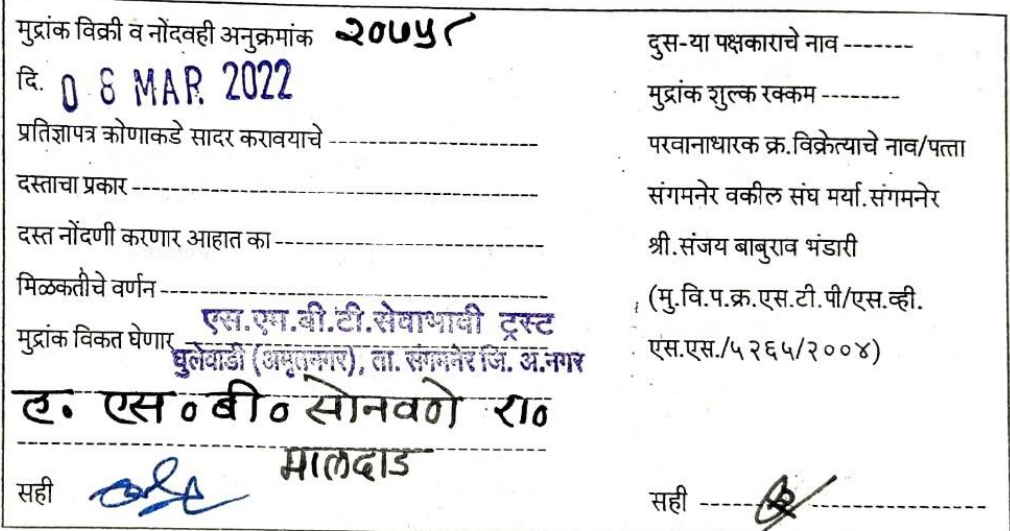 मुद्रांक विक्री व नोंदवही अनुक्रमांक २०७५८
दि. 08 MAR 2022
प्रतिज्ञापत्र कोणाकडे सादर करावयाचे --------------------
दस्ताचा प्रकार --------------------
दस्त नोंदणी करणार आहात का --------------------
मिळकतीचे वर्णन --------------------
मुद्रांक विकत घेणार एस.एम.बी.टी.सेवाभावी ट्रस्ट
घुलेवाडी (अमृतनगर), ता. संगमनेर जि. अ.नगर
ह. एस० बी० सोनवणे रा०
मालदाड
सही
दुस-या पक्षकाराचे नाव --------
मुद्रांक शुल्क रक्कम --------
परवानाधारक क्र.विक्रेत्याचे नाव/पत्ता
संगमनेर वकील संघ मर्या.संगमनेर
श्री.संजय बाबुराव भंडारी
(मु.वि.प.क्र.एस.टी.पी/एस.व्ही.
एस.एस./५२६५/२००४)
सही --------------------